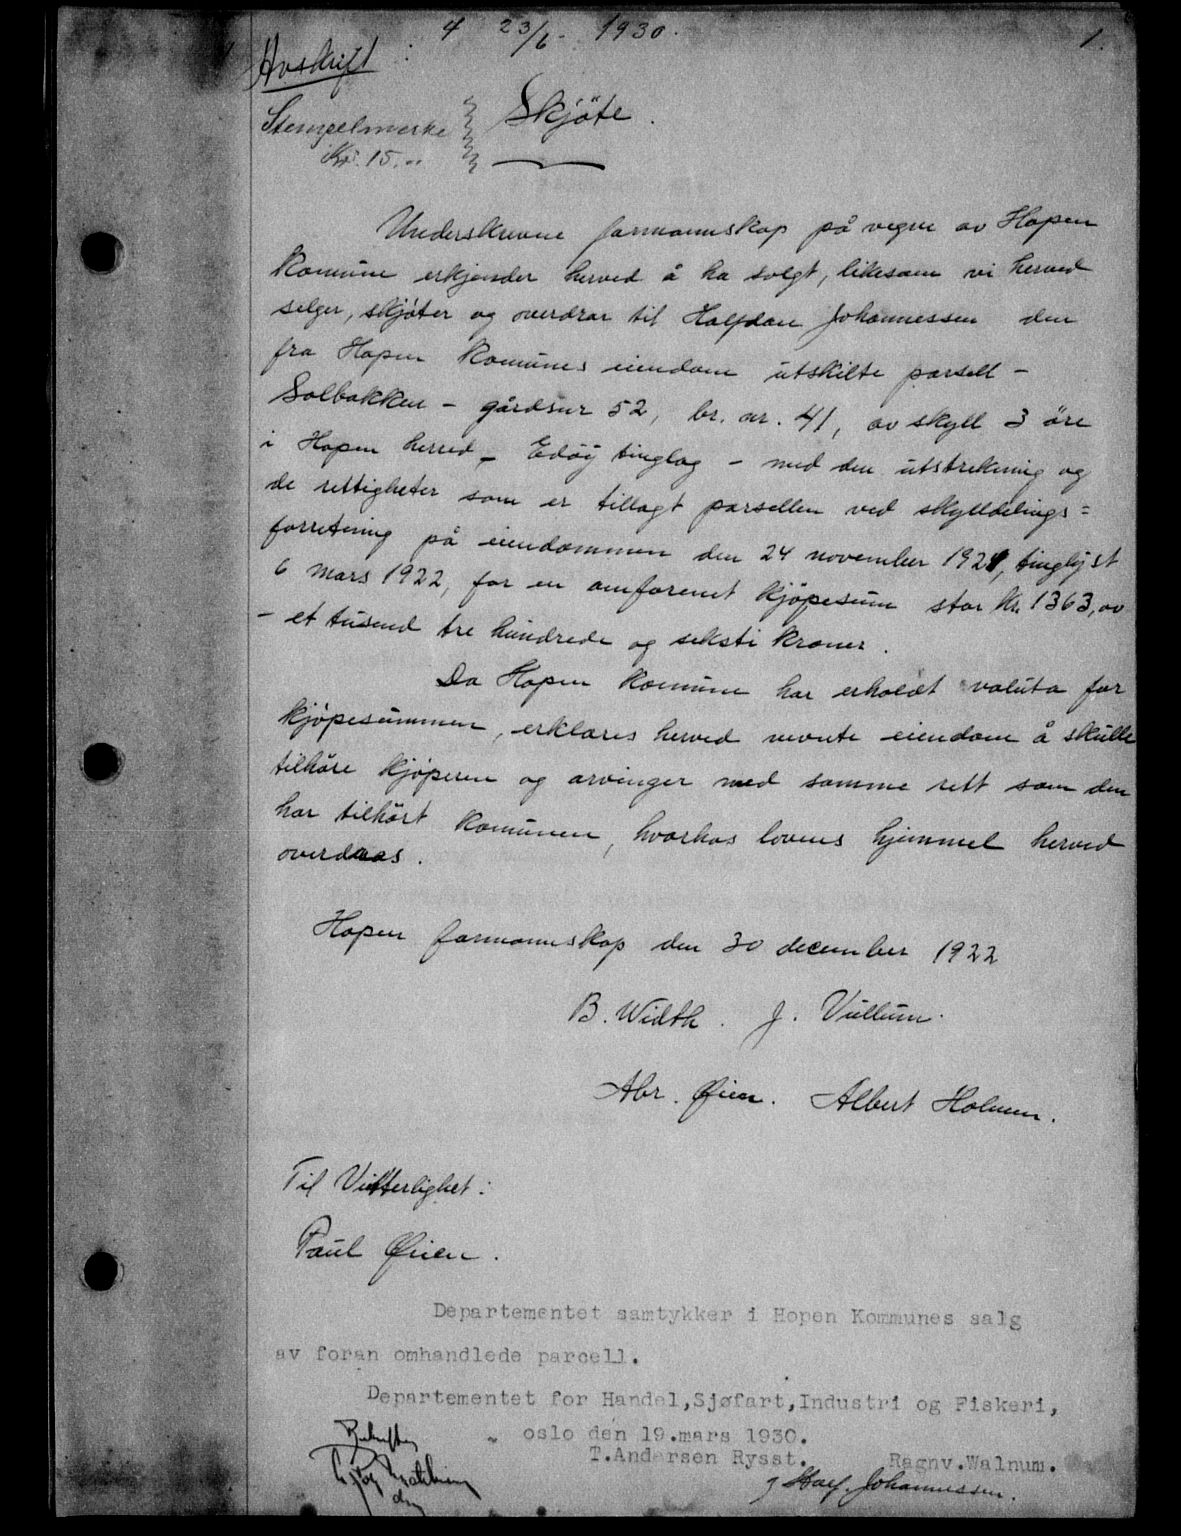 4 23/6 - 1930. 1.
Avskrift :
Stempelmerke Skjöte.
Kr. 15.00
Underskrevne formannskap på vegne av Hopen
komune erkjender herved å ha solgt, likesom vi herved
selger, skjöter og overdrar til Halfdan Johannessen den
fra Hopen komunes eiendom utskilte parsell -
Solbakken - gårdsnr 52, br. nr. 41, av skyll 3 öre
i Hopen herred - Edöy tinglag - med den utstrekning og
de rettigheter som er tillagt parsellen ved skylldelings=
forretning på eiendommen den 24 november 1921, tinglyst
6 mars 1922, for en omforenet kjöpesum stor Kr. 1363,00
- et tusend tre hundrede og seksti kroner.
Da Hopen komune har erholdt valuta for
kjöpesummen, erklæres herved nevnte eiendom å skulle
tilhöre kjöperen og arvinger med samme rett som den
har tilhört komunen, hvorhos lovens hjemmel herved
overdraas.
Hopen formannskap den 30 december 1922
B. Width. J. Vullum.
Abr. Øien. Albert Holmen.
Til Vitterlighet:
Paul Øien.
Departementet samtykker i Hopen Kommunes salg
av foran omhandlede parcell.
Departementet for Handel,Sjøfart,Industri og Fiskeri,
oslo den 19.mars 1930.
T.Andersen Rysst. Ragnv.Walnum.
Half. Johannessen.